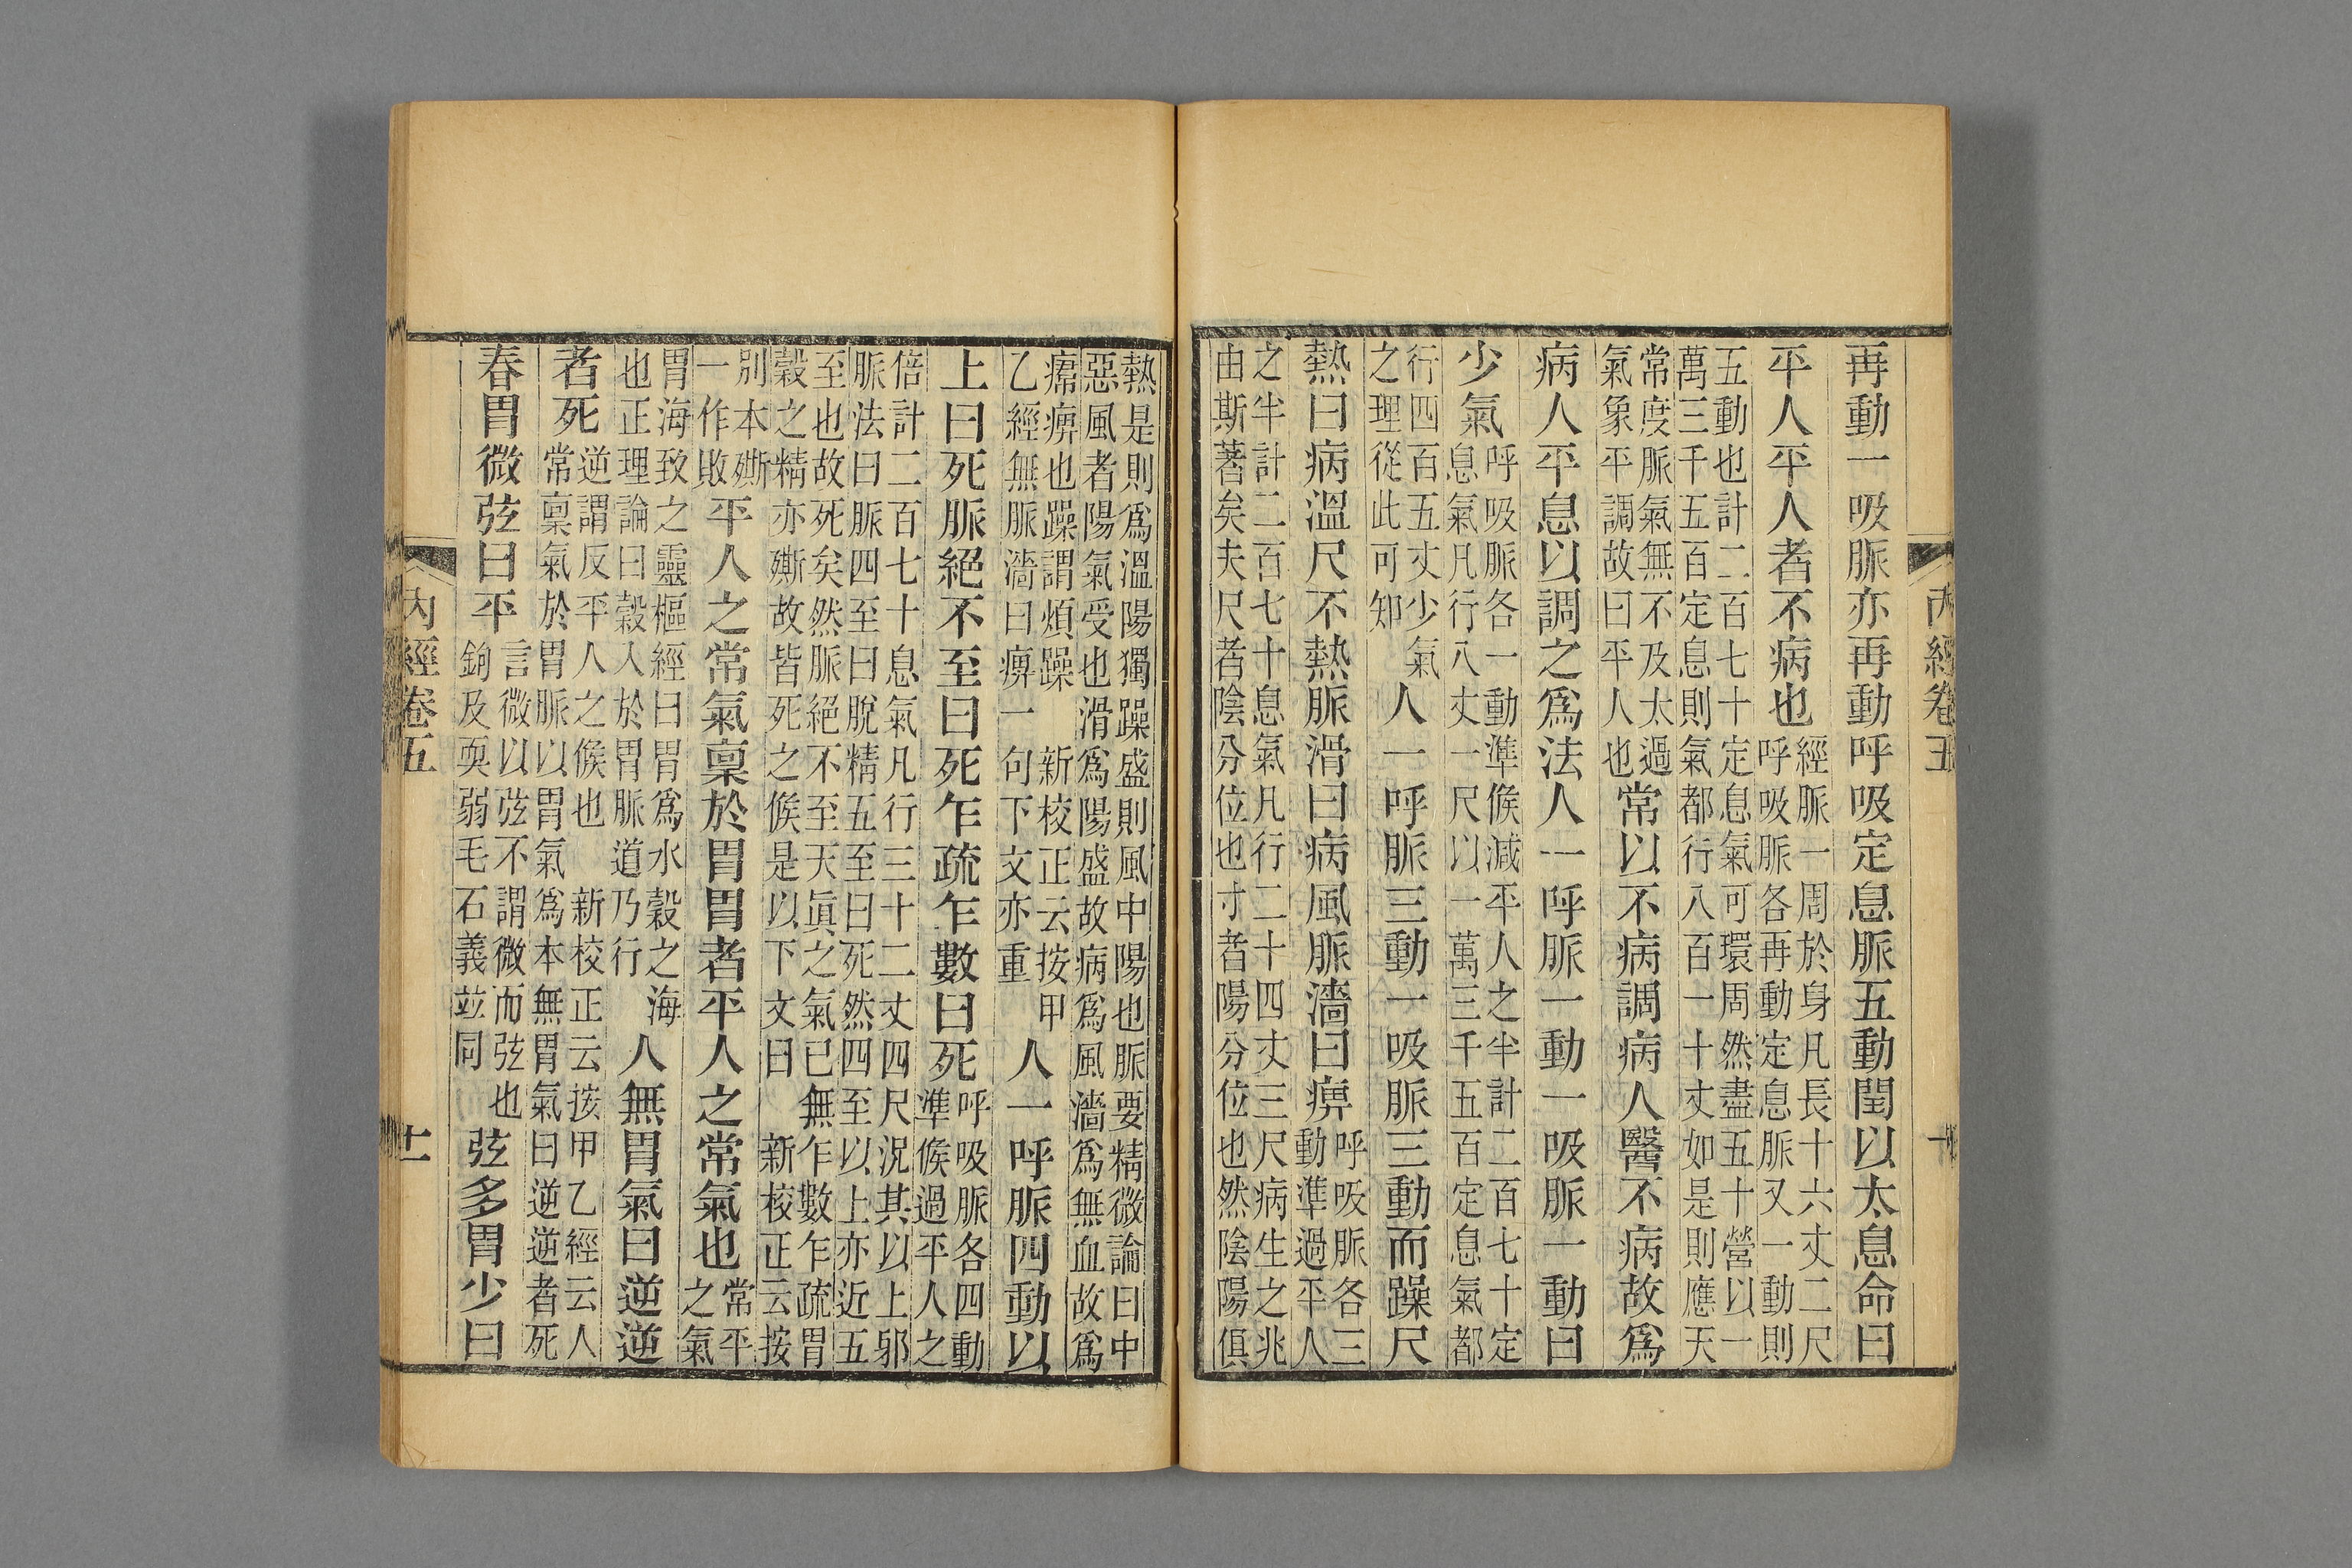 再動一吸脈亦再動呼吸定息脈五動閏以太息命曰
平人平人者不病也經脈一周於身凡長十六丈二尺呼吸脈各再動定息脈又一動則
五動也計二百七十定息氣可環周然盡五十營以一
萬三千五百定息則氣都行八百一十丈如是則應天
常度脈氣無不及太過氣象平調故曰平人也常以不病調病人醫不病故爲
病人平息以調之爲法人一呼脈一動一吸脈一動曰
少氣呼吸脈各一動準候減平人之半計二百七十定息氣凡行八丈一尺以一萬三千五百定息氣都
行四百五丈少氣之理從此可知人一呼脈三動一吸脈三動而躁尺
熱曰病溫尺不熱脈滑曰病風脈濇曰痹呼吸脈各三動準過平人
之半計二百七十息氣凡行二十四丈三尺病生之兆
由斯著矣夫尺者陰分位也寸者陽分位也然陰陽俱
內經卷五
十
熱是則爲溫陽獨躁盛則風中陽也脈要精微論曰中
惡風者陽氣受也滑爲陽盛故病爲風濇爲無血故爲
痹也躁謂煩躁 新校正云按甲乙經無脈濇曰痹一句下文亦重人一呼脈四動以
上曰死脈絕不至曰死乍疏乍數曰死呼吸脈各四動準候過平人之
倍計二百七十息氣凡行三十二丈四尺況其以上邪
脈法曰脈四至曰脫精五至曰死然四至以上亦近五
至也故死矣然脈絕不至天眞之氣已無乍數乍疏胃
穀之精亦故皆死之候是以下文曰 新校正云按
別本一作敗平人之常氣稟於胃胃者平人之常氣也常平之氣
胃海致之靈樞經曰胃爲水穀之海也正理論曰穀入於胃脈道乃行人無胃氣曰逆逆
者死逆謂反平人之候也 新校正云按甲乙經云人常稟氣於胃脈以胃氣爲本無胃氣曰逆逆者死
春胃微弦曰平言微以弦不謂微而弦也鉤及耎弱毛石義竝同弦多胃少曰
內經卷五
十一